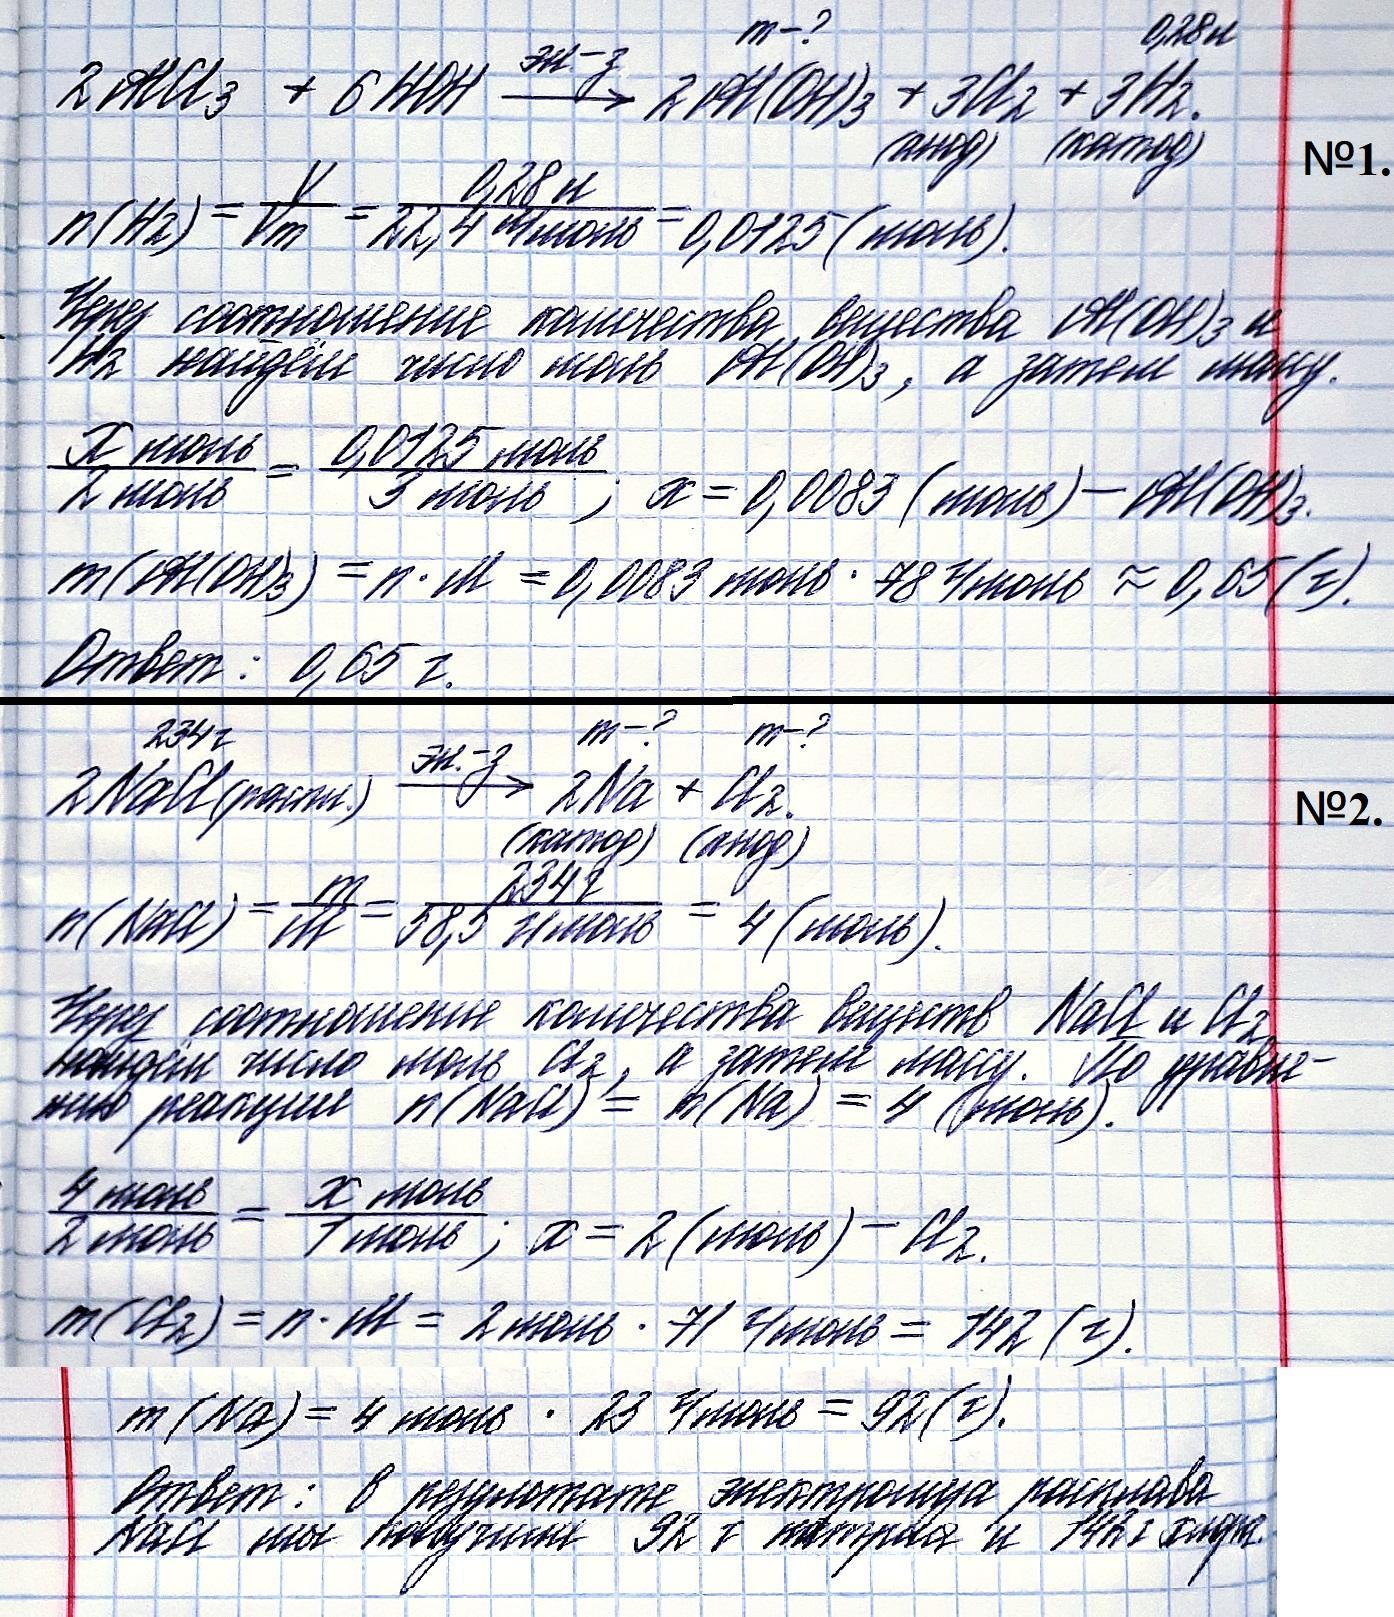 m-? 0,28л
2AlCl3 + 6HOH эл-з → 2Al(OH)3 + 3Cl2 + 3H2.
(анод) (катод)
№1.
n(H2) = V/Vm = 0,28л/22,4 л/моль = 0,0125 (моль).
Через соотношение количества вещества Al(OH)3 и
H2 найдём число моль Al(OH)3, а затем массу.
x моль/2 моль = 0,0125 моль/3 моль; x = 0,0083 (моль) – Al(OH)3.
m(Al(OH)3) = n·M = 0,0083 моль · 78 г/моль ≈ 0,65 (г).
Ответ: 0,65 г.
234г m-? m-?
2NaCl(распл.) эл.-з → 2Na + Cl2.
(катод) (анод)
№2.
n(NaCl) = m/M = 234г/58,5 г/моль = 4 (моль).
Через соотношение количества веществ NaCl и Cl2
найдём число моль Cl2, а затем массу. По уравне-
нию реакции n(NaCl) = n(Na) = 4 (моль).
4 моль/2 моль = x моль/1 моль; x = 2 (моль) – Cl2.
m(Cl2) = n·M = 2 моль · 71 г/моль = 142 (г).
m(Na) = 4 моль · 23 г/моль = 92 (г).
Ответ: в результате электролиза расплава
NaCl мы получили 92 г натрия и 142 г хлора.